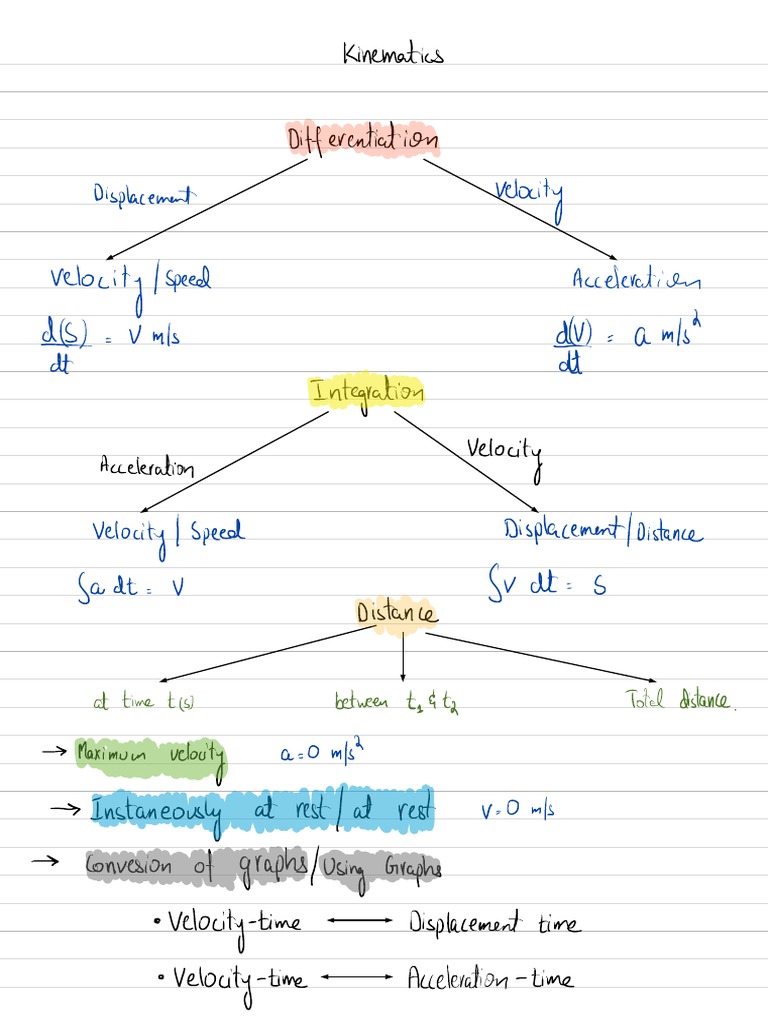 Kinematics
Differentiation
Displacement
Velocity
Velocity/Speed
Acceleration
d(S)/dt = V m/s
d(V)/dt = a m/s²
Integration
Acceleration
Velocity
Velocity/Speed
Displacement/Distance
∫a dt = V
∫V dt = S
Distance
at time t(s)
between t₁ & t₂
Total distance.
→ Maximum velocity a=0 m/s²
→ Instaneously at rest/at rest v=0 m/s
→ Convesion of graphs/Using Graphs
• Velocity-time ⟷ Displacement time
• Velocity-time ⟷ Acceleration-time